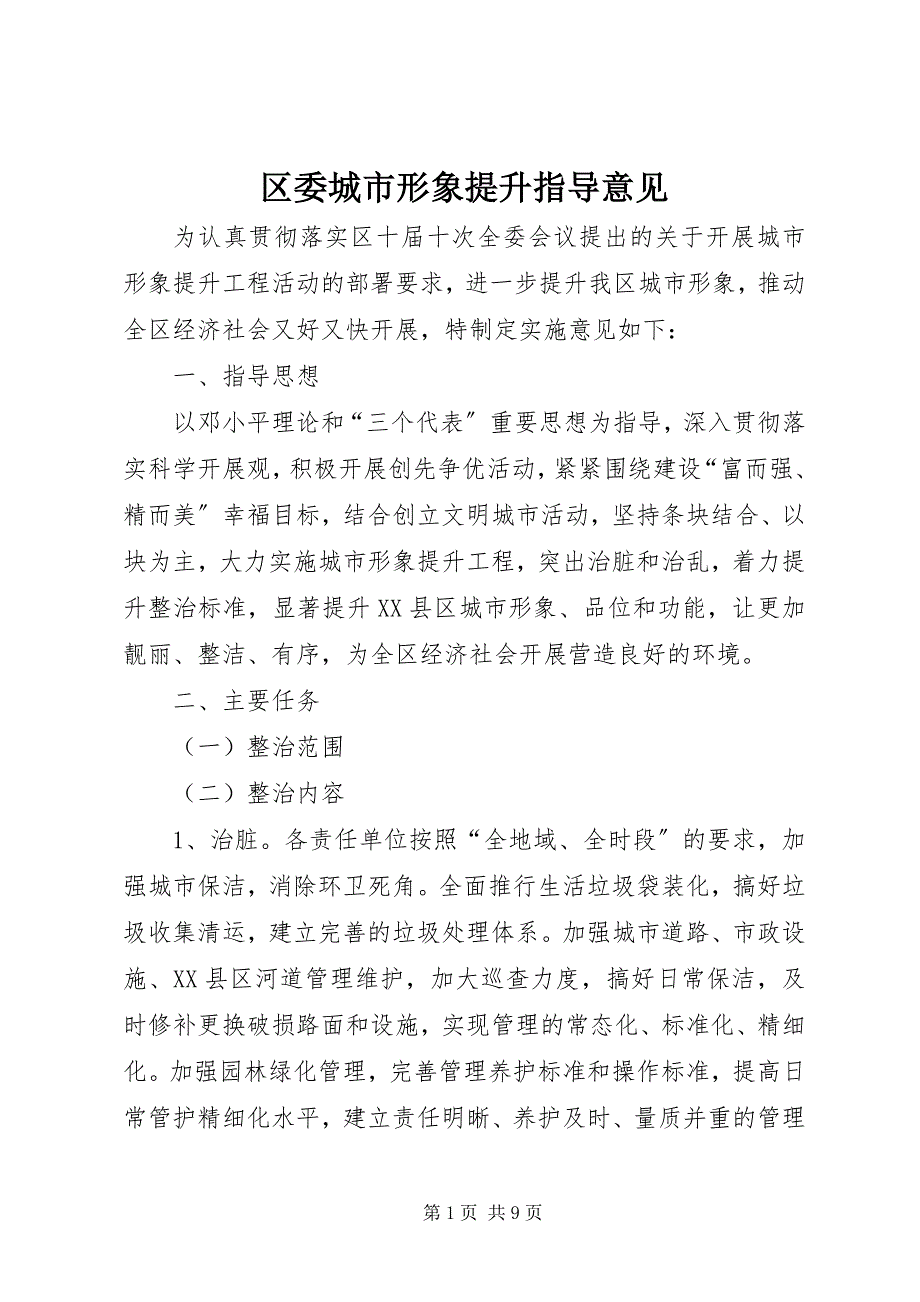 区委城市形象提升指导意见
为认真贯彻落实区十届十次全委会议提出的关于开展城市
形象提升工程活动的部署要求，进一步提升我区城市形象，推动
全区经济社会又好又快开展，特制定实施意见如下：
一、指导思想
以邓小平理论和“三个代表〞重要思想为指导，深入贯彻落
实科学开展观，积极开展创先争优活动，紧紧围绕建设“富而强、
精而美〞幸福目标，结合创立文明城市活动，坚持条块结合、以
块为主，大力实施城市形象提升工程，突出治脏和治乱，着力提
升整治标准，显著提升 XX 县区城市形象、品位和功能，让更加
靓丽、整洁、有序，为全区经济社会开展营造良好的环境。
二、主要任务
（一）整治范围
（二）整治内容
1、治脏。各责任单位按照“全地域、全时段〞的要求，加
强城市保洁，消除环卫死角。全面推行生活垃圾袋装化，搞好垃
圾收集清运，建立完善的垃圾处理体系。加强城市道路、市政设
施、XX 县区河道管理维护，加大巡查力度，搞好日常保洁，及
时修补更换破损路面和设施，实现管理的常态化、标准化、精细
化。加强园林绿化管理，完善管理养护标准和操作标准，提高日
常管护精细化水平，建立责任明晰、养护及时、量质并重的管理
第 1 页 共 9 页